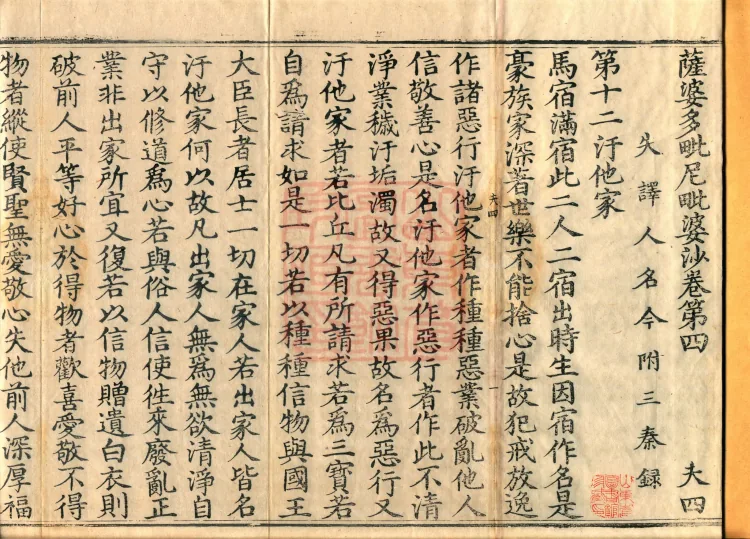 薩婆多毗尼毗婆沙卷第四 夫四
失譯人名今附三秦録
第十二汙他家
馬宿滿宿此二人二宿出時生因宿作名是
豪族家深著世樂不能捨心是故犯戒放逸
夫四 一
作諸惡行汙他家者作種種惡業破亂他人
信敬善心是名汙他家作惡行者作此不清
淨業穢汙垢濁故又得惡果故名爲惡行又
汙他家者若比丘凡有所請求若爲三寶若
自爲請求如是一切若以種種信物與國王
大臣長者居士一切在家人若出家人皆名
汙他家何以故凡出家人無爲無欲清淨自
守以修道爲心若與俗人信使徃來廢亂正
業非出家所宜又復若以信物贈遺白衣則
破前人平等好心於得物者歡喜愛敬不得
物者縱使賢聖無愛敬心失他前人深厚福